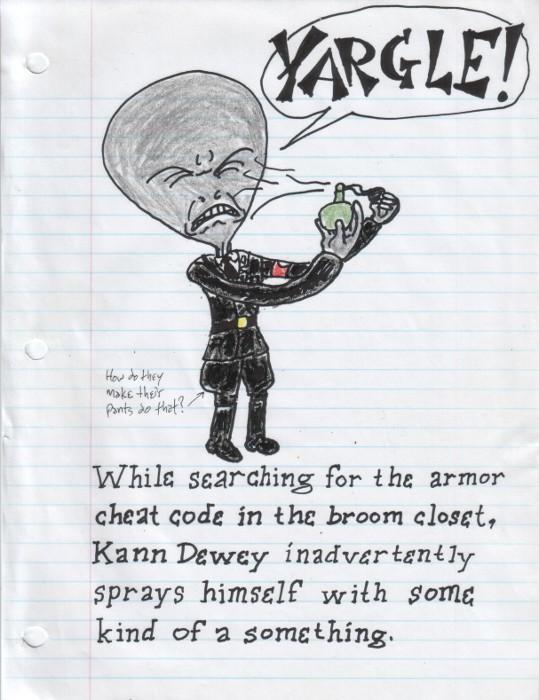 YARGLE!
How do they
make their
pants do that?
While searching for the armor
cheat code in the broom closet,
Kann Dewey inadvertently
sprays himself with some
kind of a something.